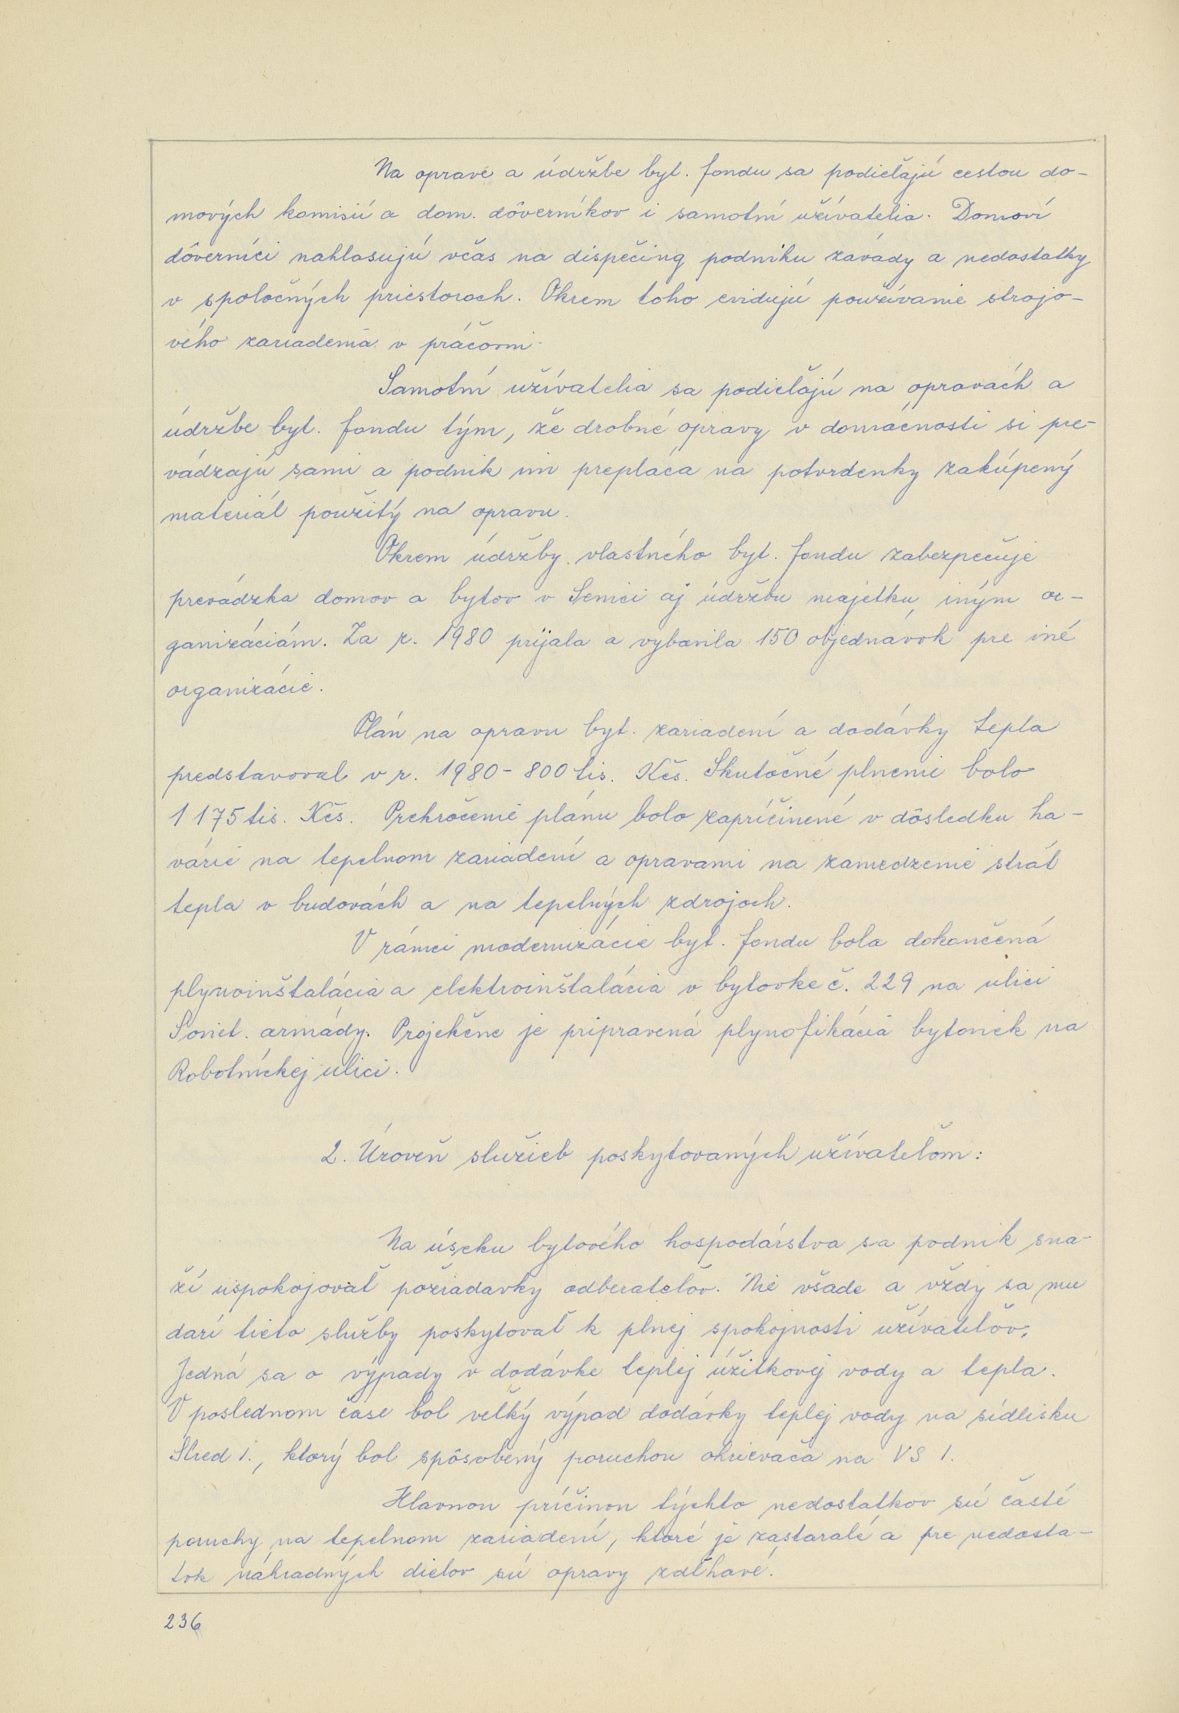 Na oprave a údržbe byt. fondu sa podieľajú cestou do-
mových komisií a dom. dôverníkov i samotní užívatelia. Domoví
dôverníci nahlasujú včas na dispečing podniku závady a nedostatky
v spoločných priestoroch. Okrem toho evidujú používanie strojo-
vého zariadenia v práčovni.
Samotní užívatelia sa podieľajú na opravách a
údržbe byt. fondu tým, že drobné opravy v domácnosti si pre-
vádzajú sami a podnik im prepláca na potvrdenky zakúpený
materiál použitý na opravu.
Okrem údržby vlastného byt. fondu zabezpečuje
prevádzka domov a bytov v Senici aj údržbu majetku iným or-
ganizáciám. Za r. 1980 prijala a vybavila 150 objednávok pre iné
organizácie.
Plán na opravu byt. zariadení a dodávky tepla
predstavoval v r. 1980 - 800 tis. Kčs. Skutočné plnenie bolo
1 175 tis. Kčs. Prekročenie plánu bolo zapríčinené v dôsledku ha-
várie na tepelnom zariadení a opravami na zamedzenie strát
tepla v budovách a na tepelných zdrojoch.
V rámci modernizácie byt. fondu bola dokončená
plynoinštalácia a elektroinštalácia v bytovke č. 229 na ulici
Soviet. armády. Projekčne je pripravená plynofikácia bytoviek na
Robotníckej ulici.
2. Úroveň služieb poskytovaných užívateľom:
Na úseku bytového hospodárstva sa podnik sna-
ží uspokojovať požiadavky odberateľov. Nie všade a vždy sa mu
darí tieto služby poskytovať k plnej spokojnosti užívateľov.
Jedná sa o výpady v dodávke teplej úžitkovej vody a tepla.
V poslednom čase bol veľký výpad dodávky teplej vody na sídlisku
Stred 1., ktorý bol spôsobený poruchou ohrievača na VS 1.
Hlavnou príčinou týchto nedostatkov sú časté
poruchy na tepelnom zariadení, ktoré je zastaralé a pre nedosta-
tok náhradných dielov sú opravy zdĺhavé.
236